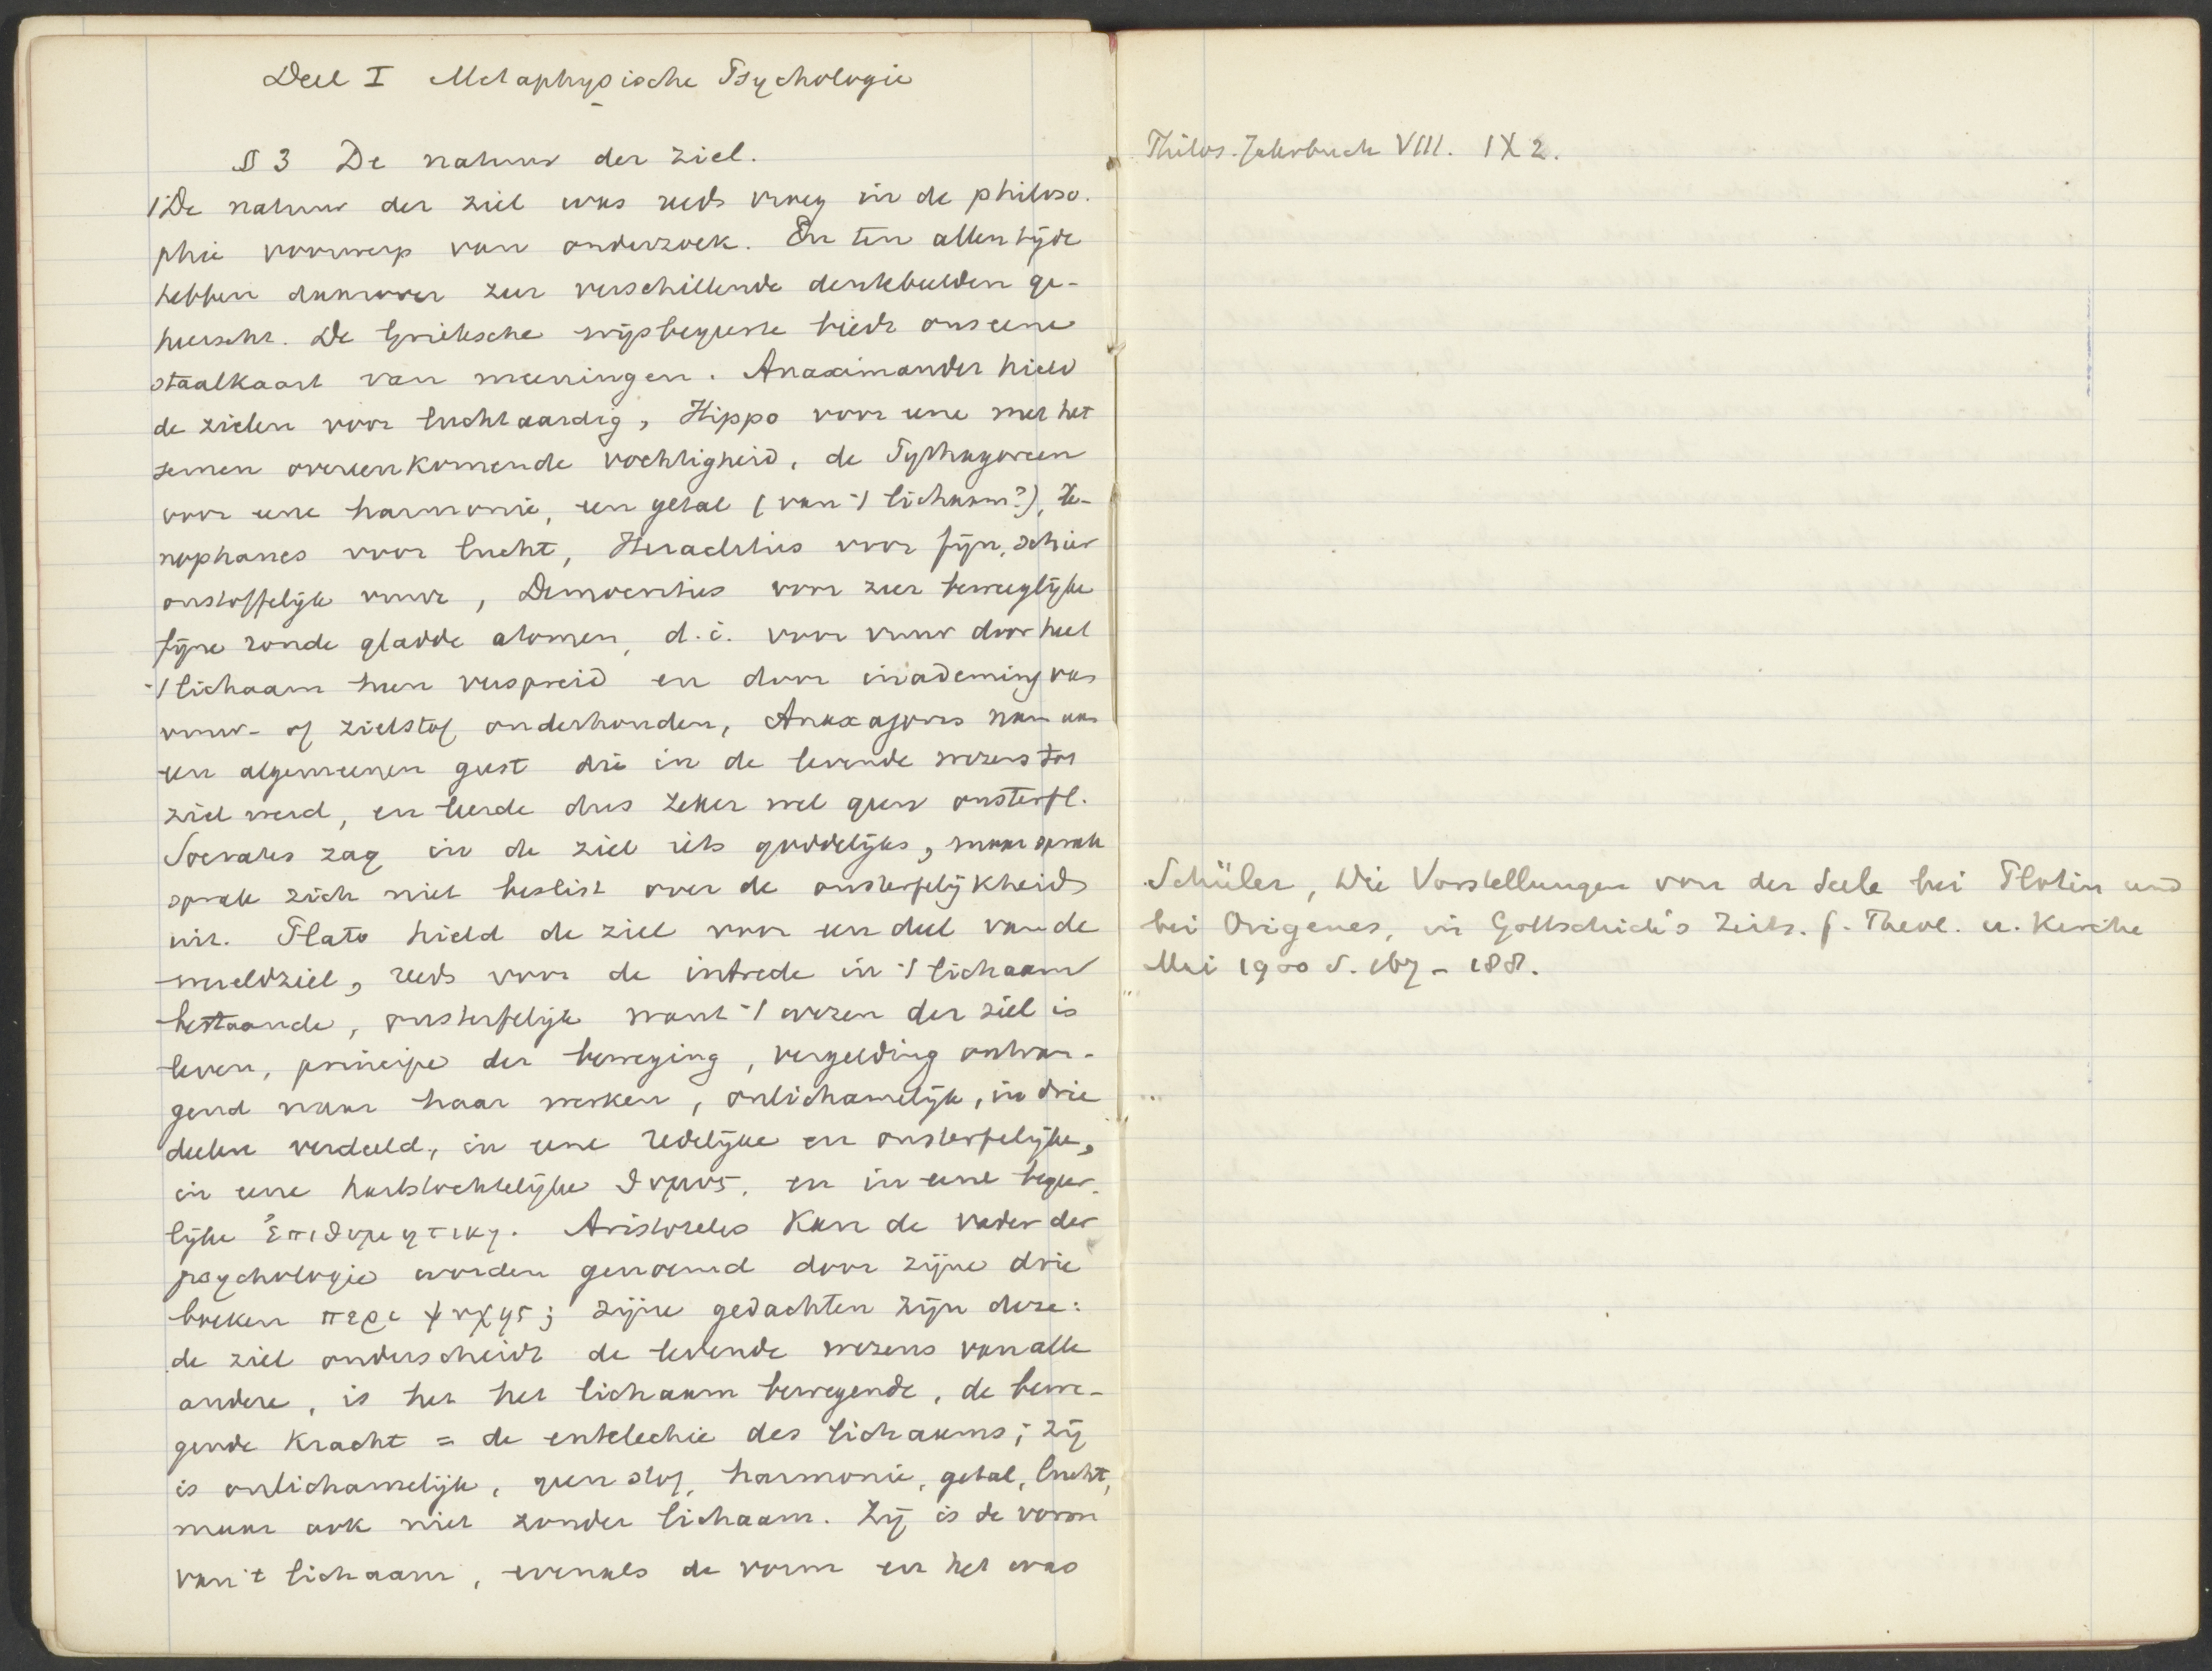 Deel I Metaphysische Psychologie
§ 3 De natuur der ziel.
1 De natuur der ziel was reeds vroeg in de philoso-
phie voorwerp van onderzoek. En ten allen tijde
hebben daarover zeer verschillende denkbeelden ge-
heerscht. De Grieksche wijsbegeerte biedt ons eene
staalkaart van meeningen. Anaximander hield
de zielen voor luchtaardig, Hippo voor eene met het
semen overeenkomende vochtigheid, de Pythagoreen
voor eene harmonie, een getal (van 't lichaam?), Xe-
nophanes voor lucht, Heraclitus voor fijn, schier
onstoffelijk vuur, Democritus voor zeer bewegelijke
fijne ronde gladde atomen, d.i. voor vuur door heel
't lichaam heen verspreid en door inademing van
vuur- of zielstof onderhouden, Anaxagoras nam aan
een algemeenen geest die in de levende wezens tot
ziel werd, en leerde dus zeker wel geen onsterfl.
Socrates zag in de ziel iets goddelijks, maar sprak
sprak zich niet beslist over de onsterfelijkheid
uit. Plato hield de ziel voor een deel van de
wereldziel, reeds voor de intrede in 't lichaam
bestaande, onsterfelijk want 't wezen der ziel is
leven, principe der beweging, vergelding ontvan-
gend naar haar werken, onlichamelijk, in drie
deelen verdeeld, in eene redelijke en onsterfelijke,
in eene hartstochtelijke θυμος, en in eene begeer-
lijke ἐπιθυμητικη. Aristoteles kan de vader der
psychologie worden genoemd door zijne drie
boeken περι ψυχης; zijne gedachten zijn deze:
de ziel onderscheidt de levende wezens van alle
andere, is het het lichaam bewegende, de bewe-
gende kracht = de entelechie des lichaams; zij
is onlichamelijk, geen stof, harmonie, getal, lucht,
maar ook niet zonder lichaam. Zij is de vorm
van 't lichaam, evenals de vorm en het was
Philos. Jahrbuch VIII. IX 2.
Schüler, Die Vorstellungen von der Seele bei Plotin und
bei Origenes, in Gottschick's Zeits. f. Theol. u. Kirche
Mai 1900 S. 167-188.